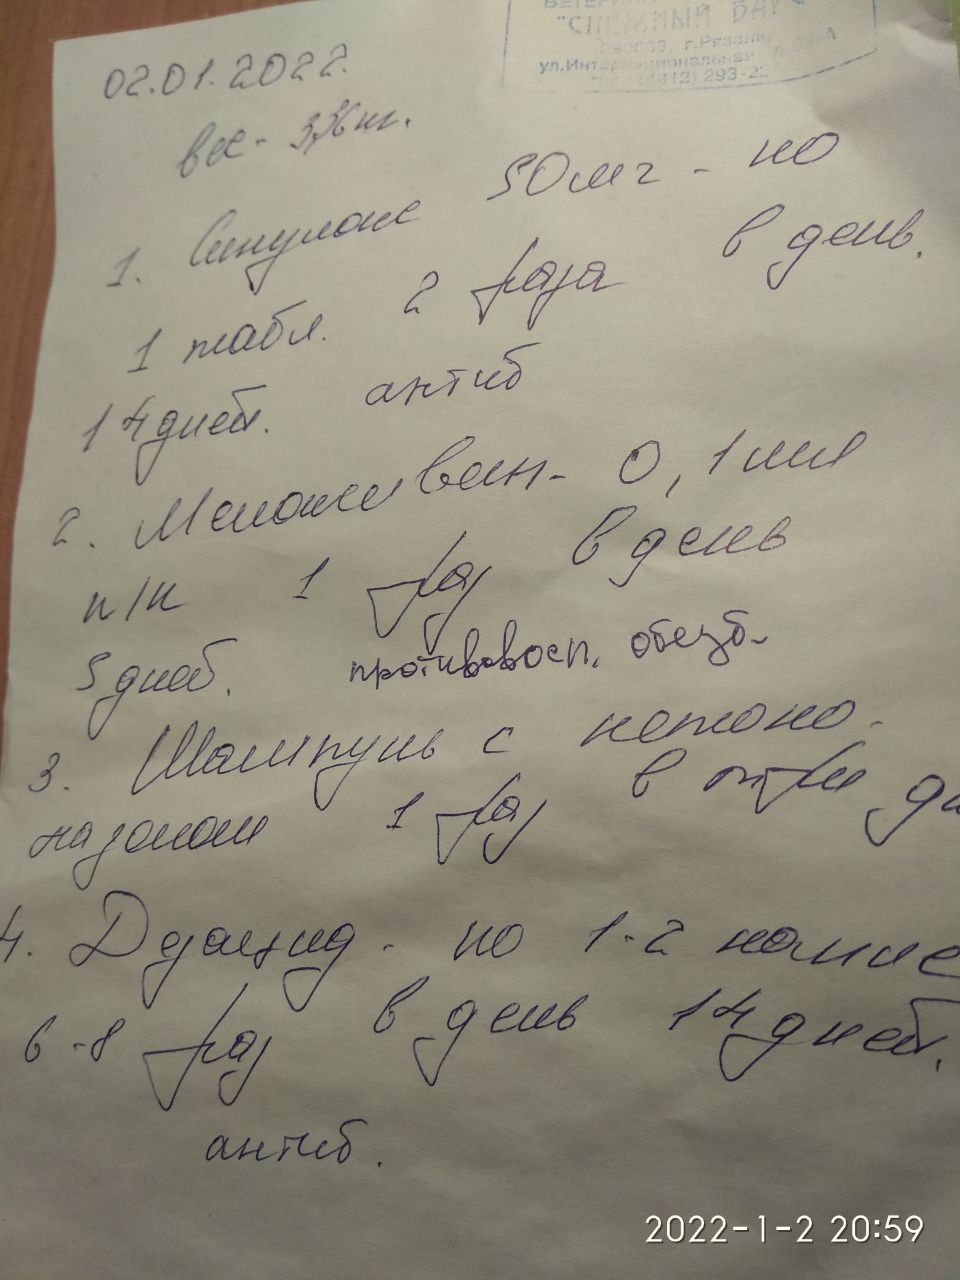 "СНЕЖНЫЙ БАРС"
г.Рязань
ул.Интернациональная
02.01.2022.
вес - 3,36 кг.
1. Синулокс 50мг - по
1 табл. 2 раза в день.
14 дней. антиб
2. Мелоксивен - 0,1 мл
п/к 1 раз в день
5 дней. противовосп. обезб.
3. Шампунь с кетоко-
назолом 1 раз в три дн
4. Дуацид - по 1-2 капле
6-8 раз в день 14 дней.
антиб.
2022-1-2 20:59